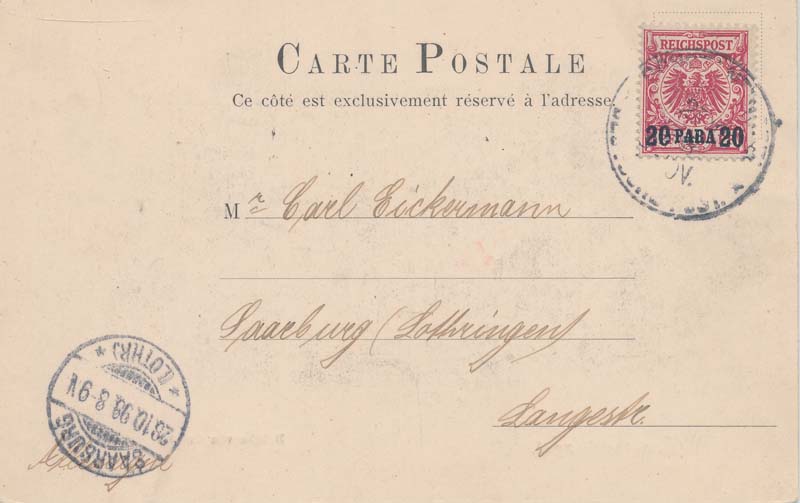 CARTE POSTALE
Ce côté est exclusivement réservé à l'adresse.
REICHSPOST
20 PARA 20
DEUTSCHE POST
N.
Mr Carl Eickermann
Saarburg (Lothringen)
Langestr.
SAARBURG
* (LOTHR) *
8-9 N